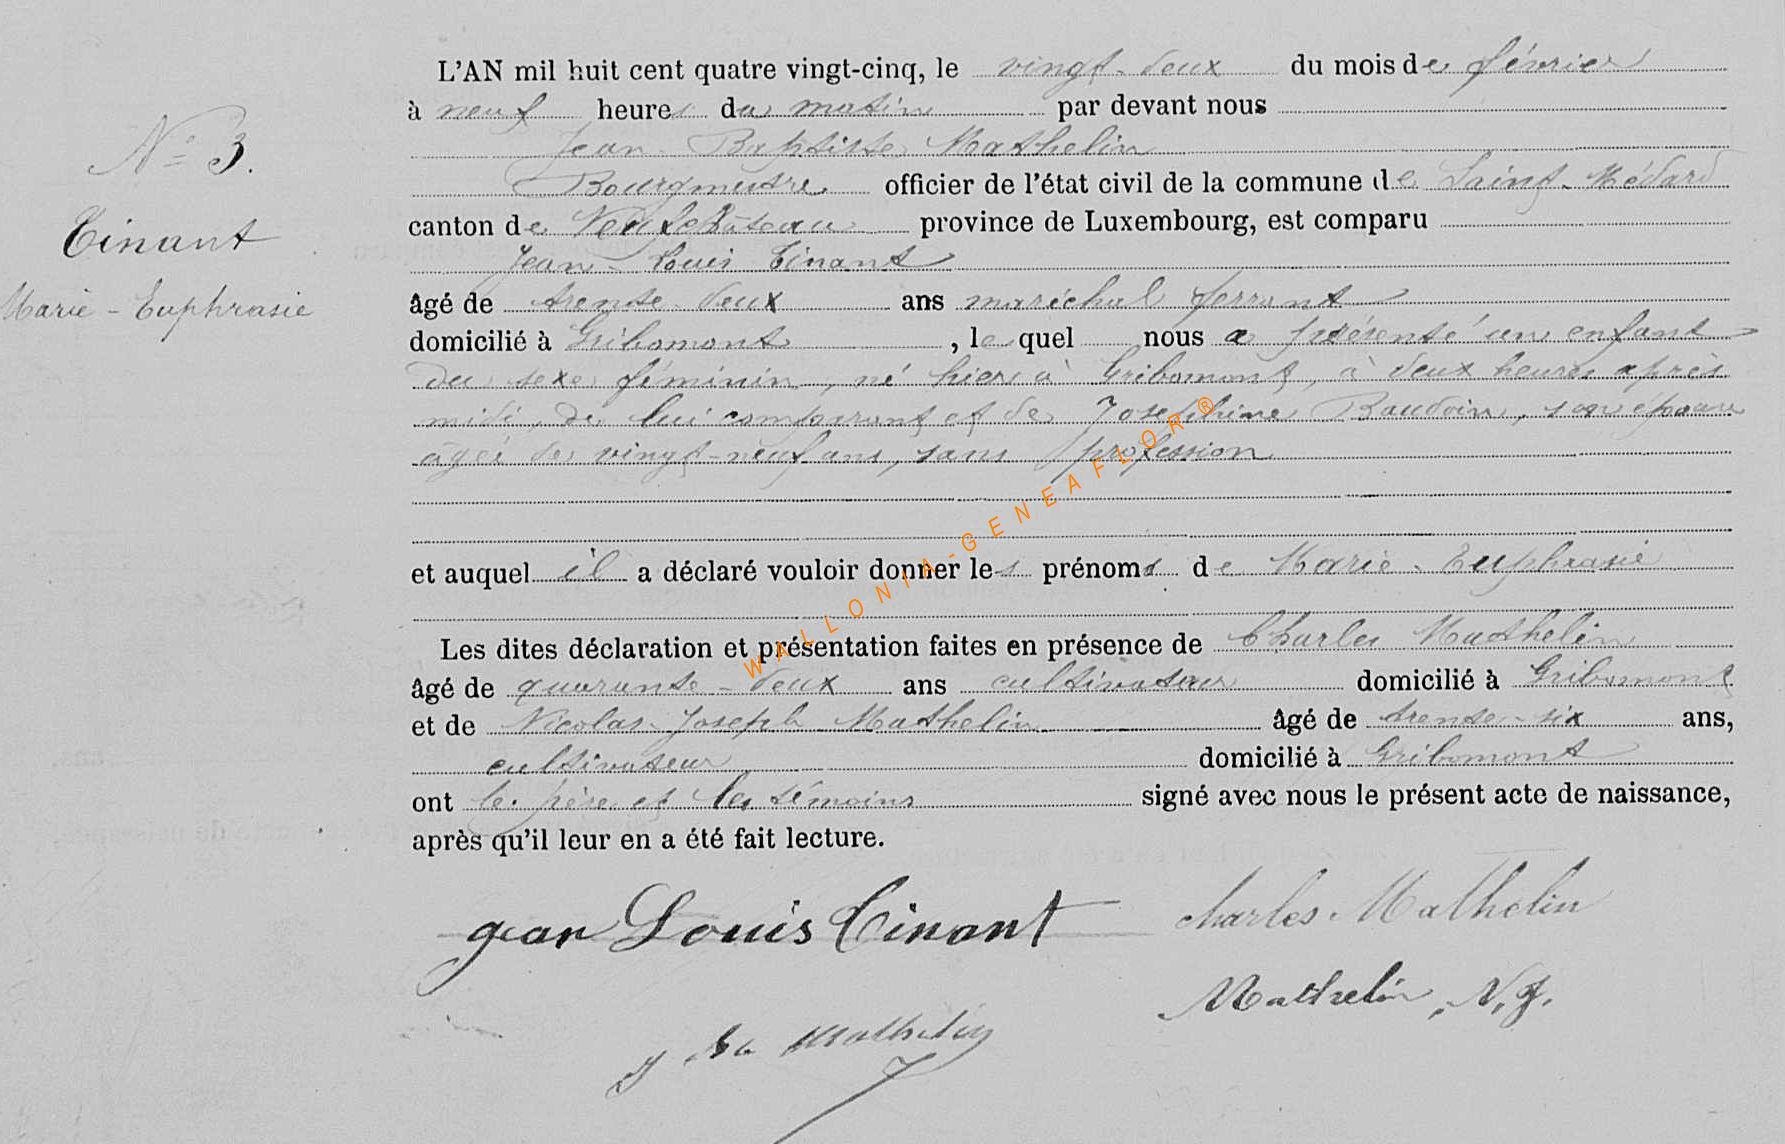 N° 3.
Tinant
Marie - Euphrasie
L'AN mil huit cent quatre vingt-cinq, le vingt-deux du mois de février
à neuf heures du matin par devant nous
Jean-Baptiste Mathelin
Bourgmestre officier de l'état civil de la commune de Saint-Médard
canton de Neufchâteau province de Luxembourg, est comparu
Jean-Louis Tinant
âgé de trente-deux ans maréchal ferrant
domicilié à Gribomont, lequel nous a présenté un enfant
du sexe féminin, né hier à Gribomont, à deux heures après
midi, de lui comparant et de Josephine Baudoin, son épouse
agée de vingt-neuf ans, sans profession
et auquel il a déclaré vouloir donner les prénoms de Marie-Euphrasie
Les dites déclaration et présentation faites en présence de Charles Mathelin
âgé de quarante-deux ans cultivateur domicilié à Gribomont
et de Nicolas-Joseph Mathelin âgé de trente-six ans,
cultivateur domicilié à Gribomont
ont le père et les témoins signé avec nous le présent acte de naissance,
après qu'il leur en a été fait lecture.
jean Louis Tinant
charles Mathelin
Mathelin, N. J.
J Bte Mathelin
WALLONIA-GENEAFLOR®